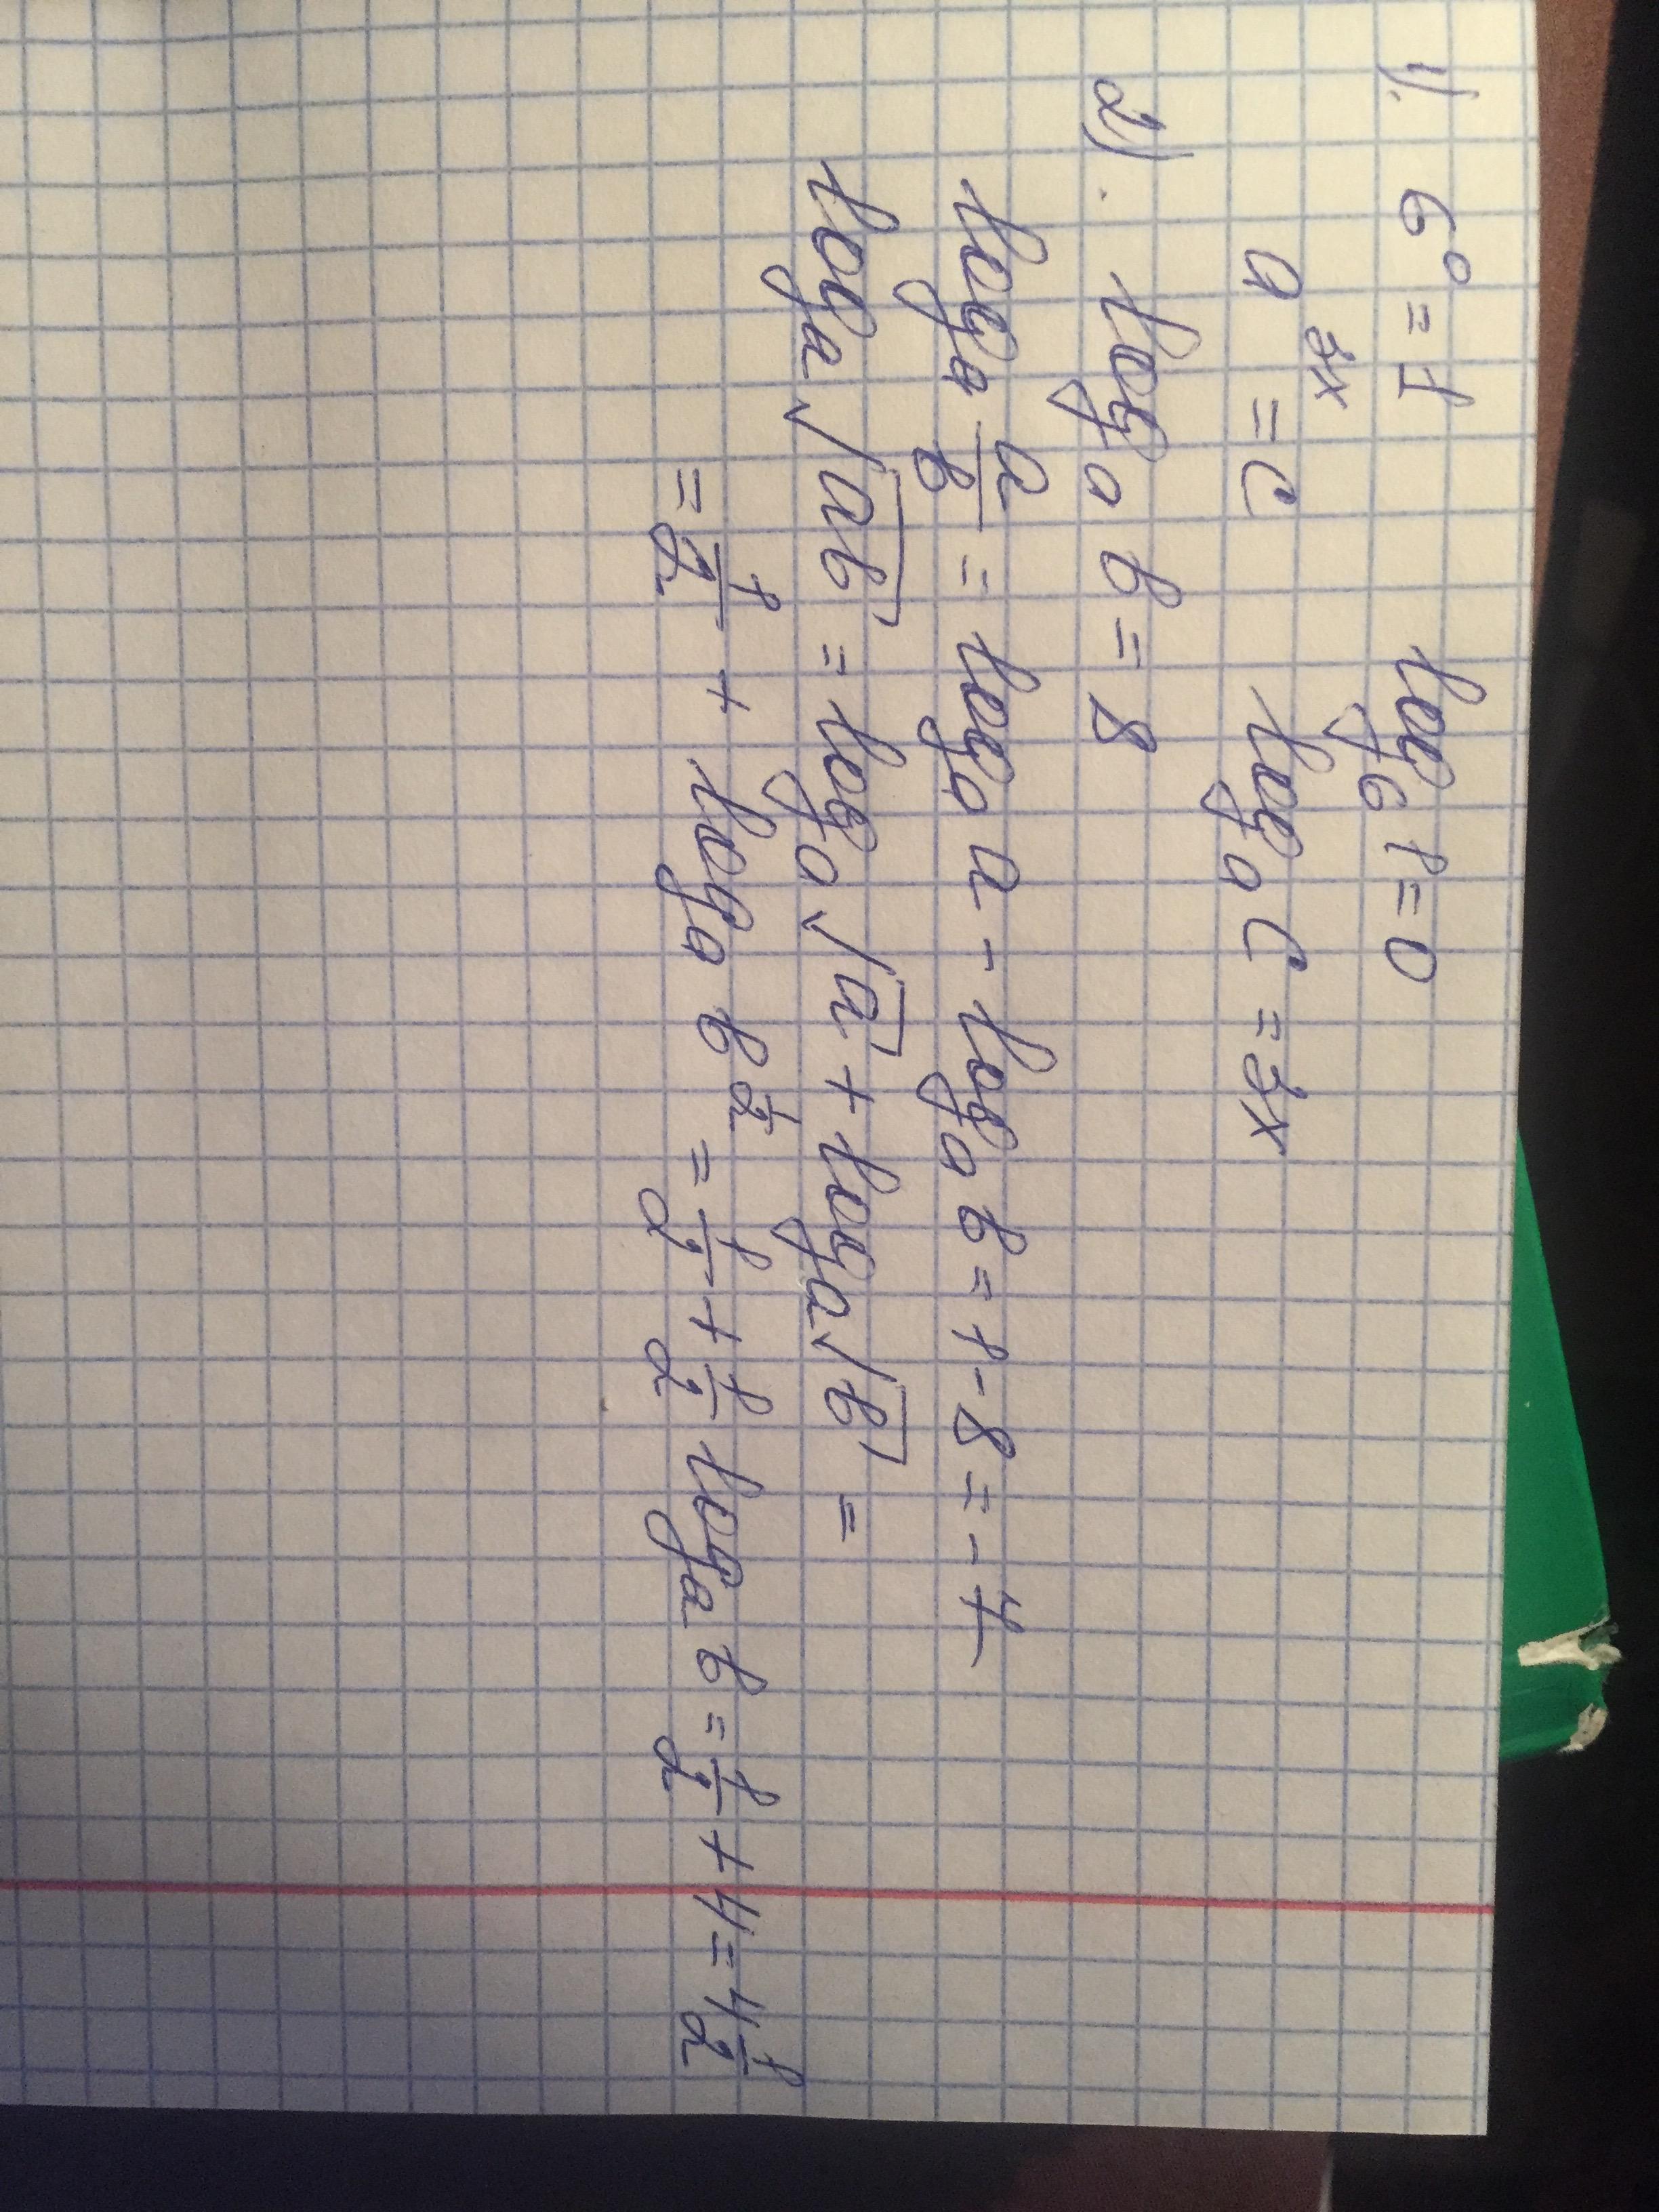 1). 6⁰ = 1 log₆ 1 = 0
a³ˣ = c logₐ c = 3x
2). logₐ b = 8
logₐ a/b = logₐ a - logₐ b = 1 - 8 = -7
logₐ √ab = logₐ √a + logₐ √b =
= 1/2 + logₐ b^1/2 = 1/2 + 1/2 logₐ b = 1/2 + 4 = 4 1/2